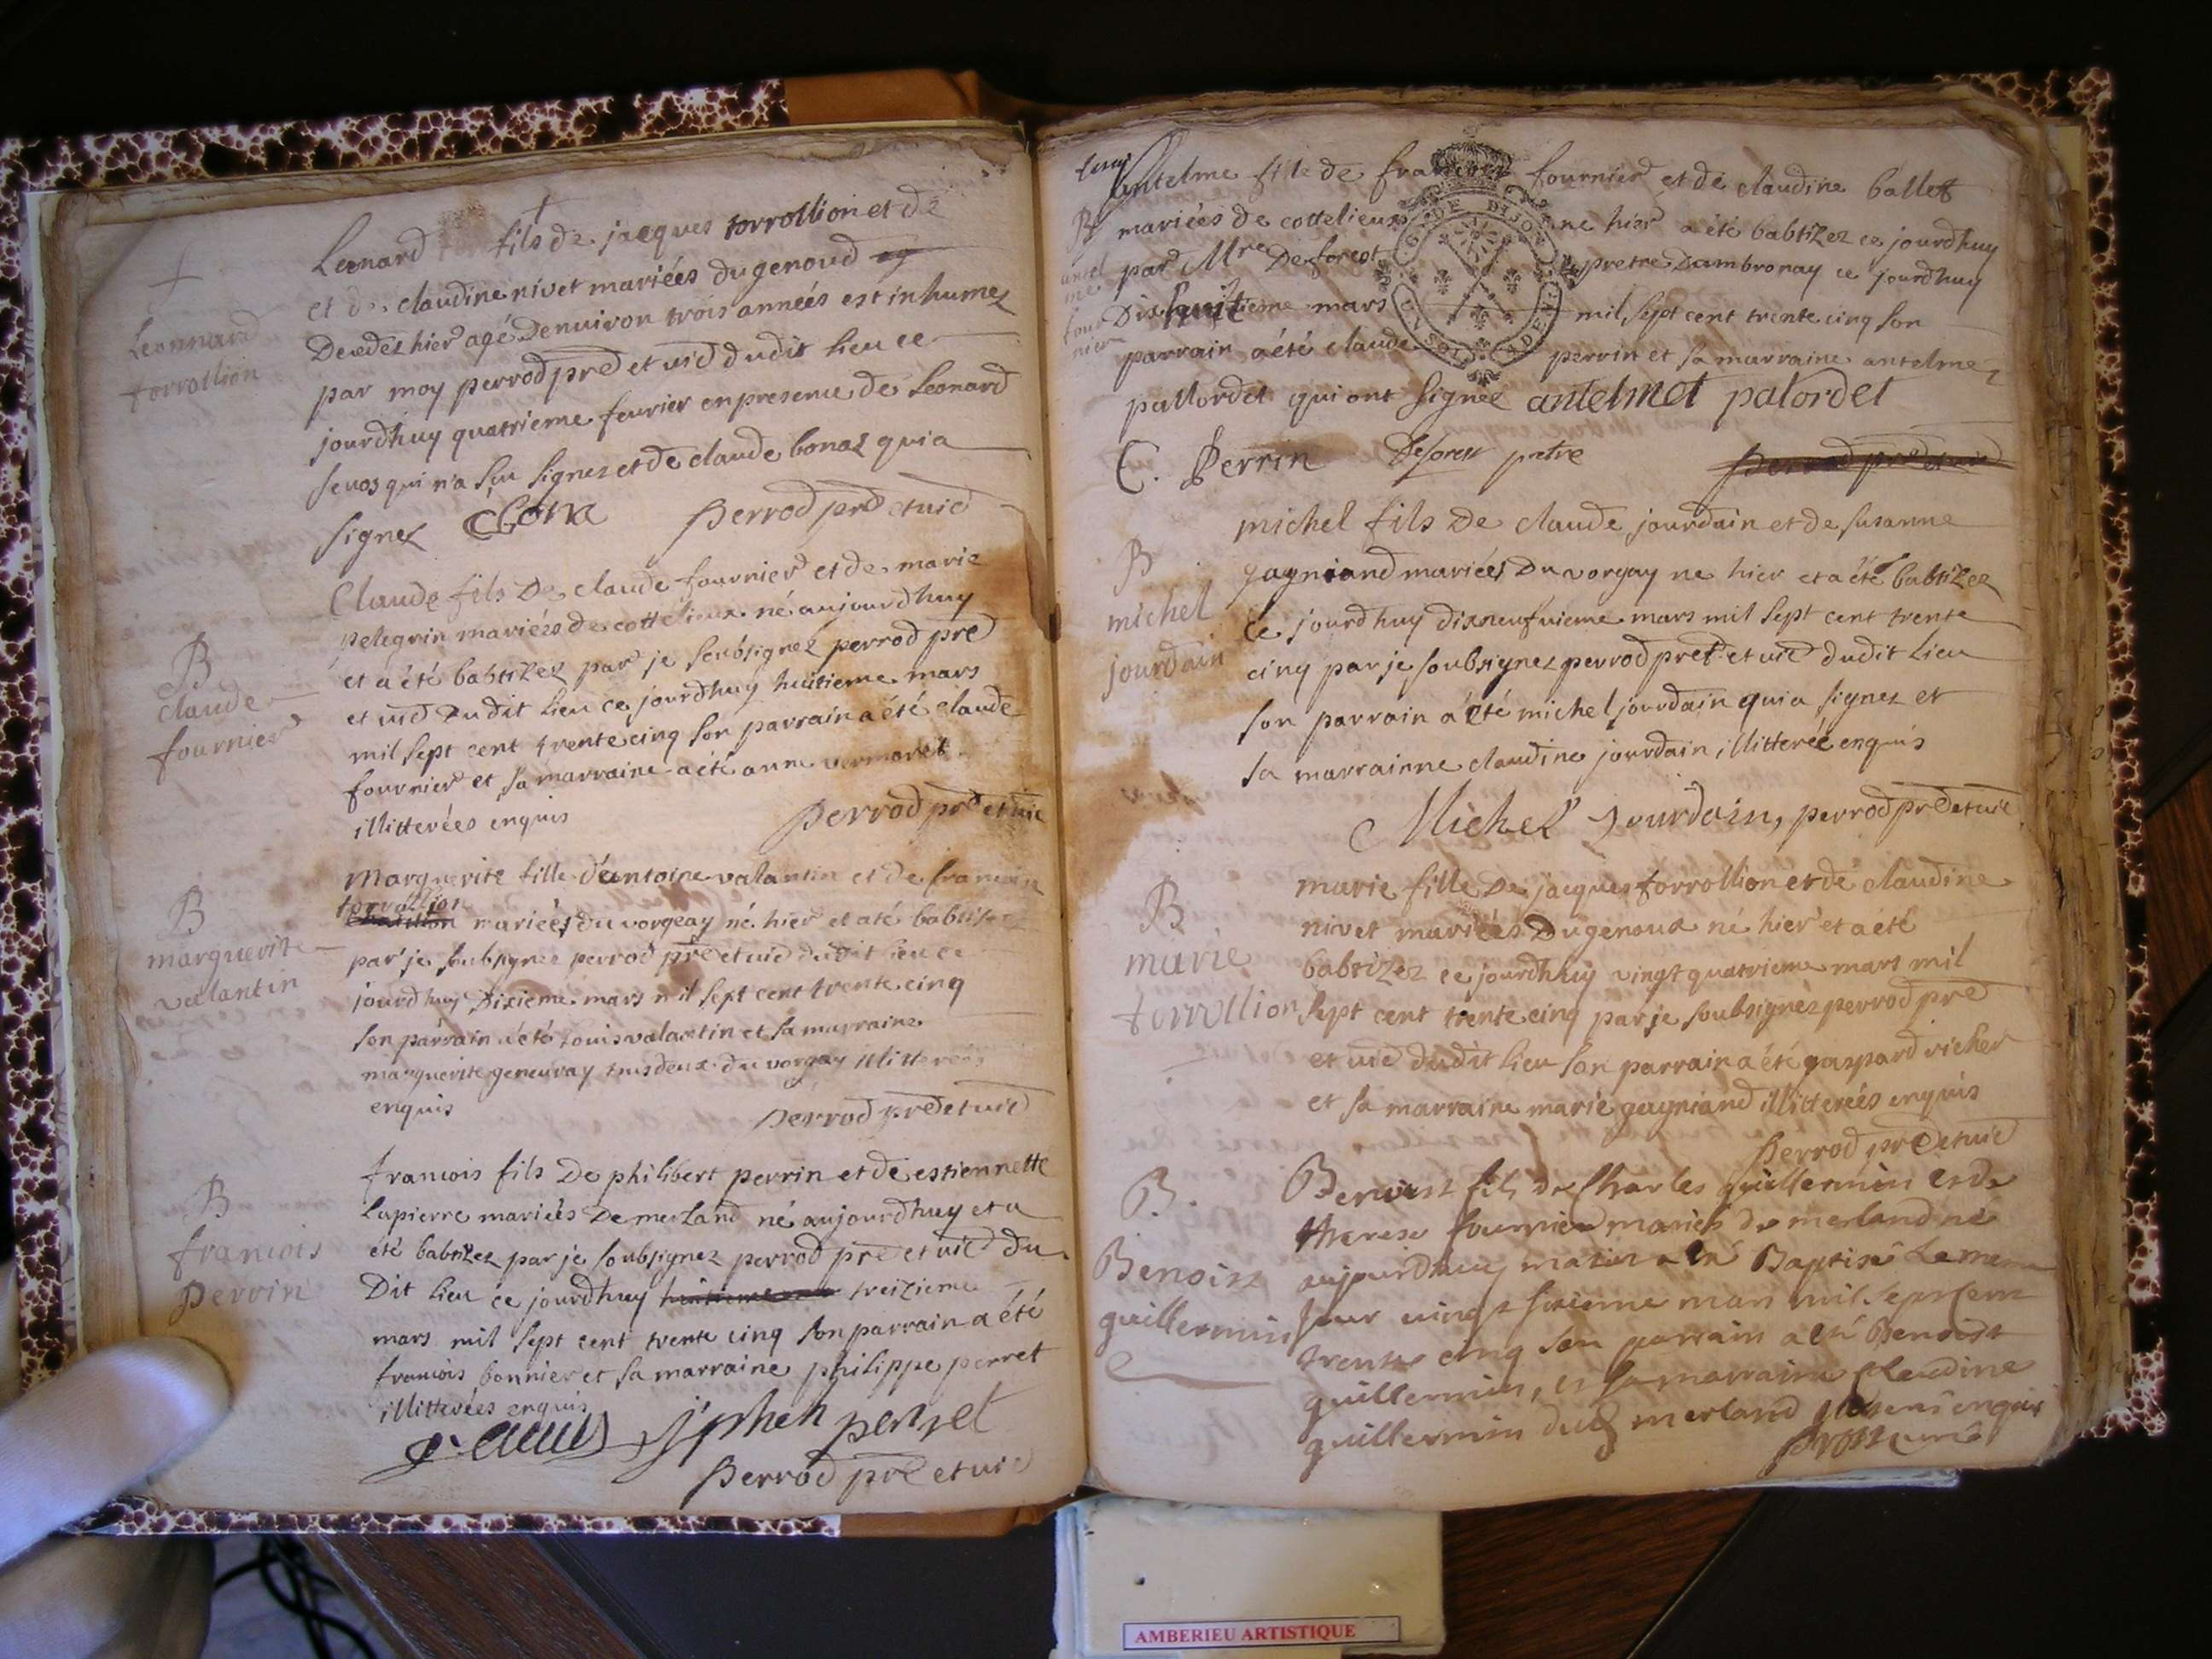 Leonard fils de jacques torrollion et de
et de claudine nivet mariées du genoud
Decedez hier agé Denuiron trois années est inhumez
par moy perrod pre et uic dudit lieu ce
jourdhuy quatrieme feurier en presence de Leonard
seuos qui n'a sçu signer et de claude bonaz qui a
signez CBona Perrod pre et uic
Leonnard
torrollion
Claude fils De claude fournier et de marie
pelegrin mariées de cottelieux né aujourdhuy
et a été babtizez par je soubsignez perrod pre
et uic Dudit Lieu ce jourdhuy huitieme mars
mil sept cent trente cinq son parrain a été claude
fournier et sa marraine a été anne vermoret
illitterées enquis Perrod pre et uic
B
claude
fournier
Marguerite fille d'antoine valantin et de francoise
torrollion
mariées du vorgeay né hier et a té babtisez
par je soubsignez perrod pre et uic dudit lieu ce
jourdhuy Dixieme mars mil sept cent trente cinq
son parrain a été Louis valantin et sa marraine
marguerite geneuray tous deux du vorgay illitterées
enquis Perrod pre et uic
B
marguerite
valantin
francois fils De philibert perrin et de estiennette
Lapierre mariées De merLand né aujourdhuy et a
été babtizez par je soubsignez perrod pre et uic du
Dit lieu ce jourdhuy treizieme
mars mil sept cent trente cinq son parrain a été
francois bonnier et sa marraine philippe perret
illitterées enquis
perret
Perrod pre et uic
B
francois
perrin
antelme fils de francois fournier et de claudine ballet
mariées de cottelieux ne hier a été babtizez ce jourdhuy
par Mre Deforest pretre Dambronay ce jourdhuy
Dixhuitieme mars mil sept cent trente cinq son
parrain a été claude perrin et sa marraine antelme
pallordet qui ont signez antelmet palordet
C. Perrin Deforest pretre
B
antel
me
four
nier
G DE DIJON
michel fils De claude jourdain et de susanne
gagniand mariées Du vorgay ne hier et a été babtizez
Ce jourdhuy dixneufuieme mars mil sept cent trente
cinq par je soubsignez perrod pret et uic dudit Lieu
son parrain a été michel jourdain qui a signez et
sa marrainne claudine jourdain illitterée enquis
Michel Jourdain, perrod pre et uic
B
michel
jourdain
marie fille De jacques torrollion et de claudine
nivet mariées Du genoux né hier et a été
babtizez ce jourdhuy vingt quatrieme mars mil
sept cent trente cinq par je soubsignez perrod pre
et uic dudit lieu son parrain a été gaspard richer
et sa marraine marie gagniand illitterées enquis
Perrod pre et uic
B
marie
torrollion
Benoist fils de Charles guillermin et de
therese fournier mariés de merland né
aujourdhuy matin a été Baptisé Le meme
jour uingt sixieme mars mil sept cent
trente cinq son parrain a été Benoist
guillermin, et sa marraine Claudine
guillermin dud merland illiterés enquis
Prost curé
B.
Benoist
guillermin
AMBERIEU ARTISTIQUE